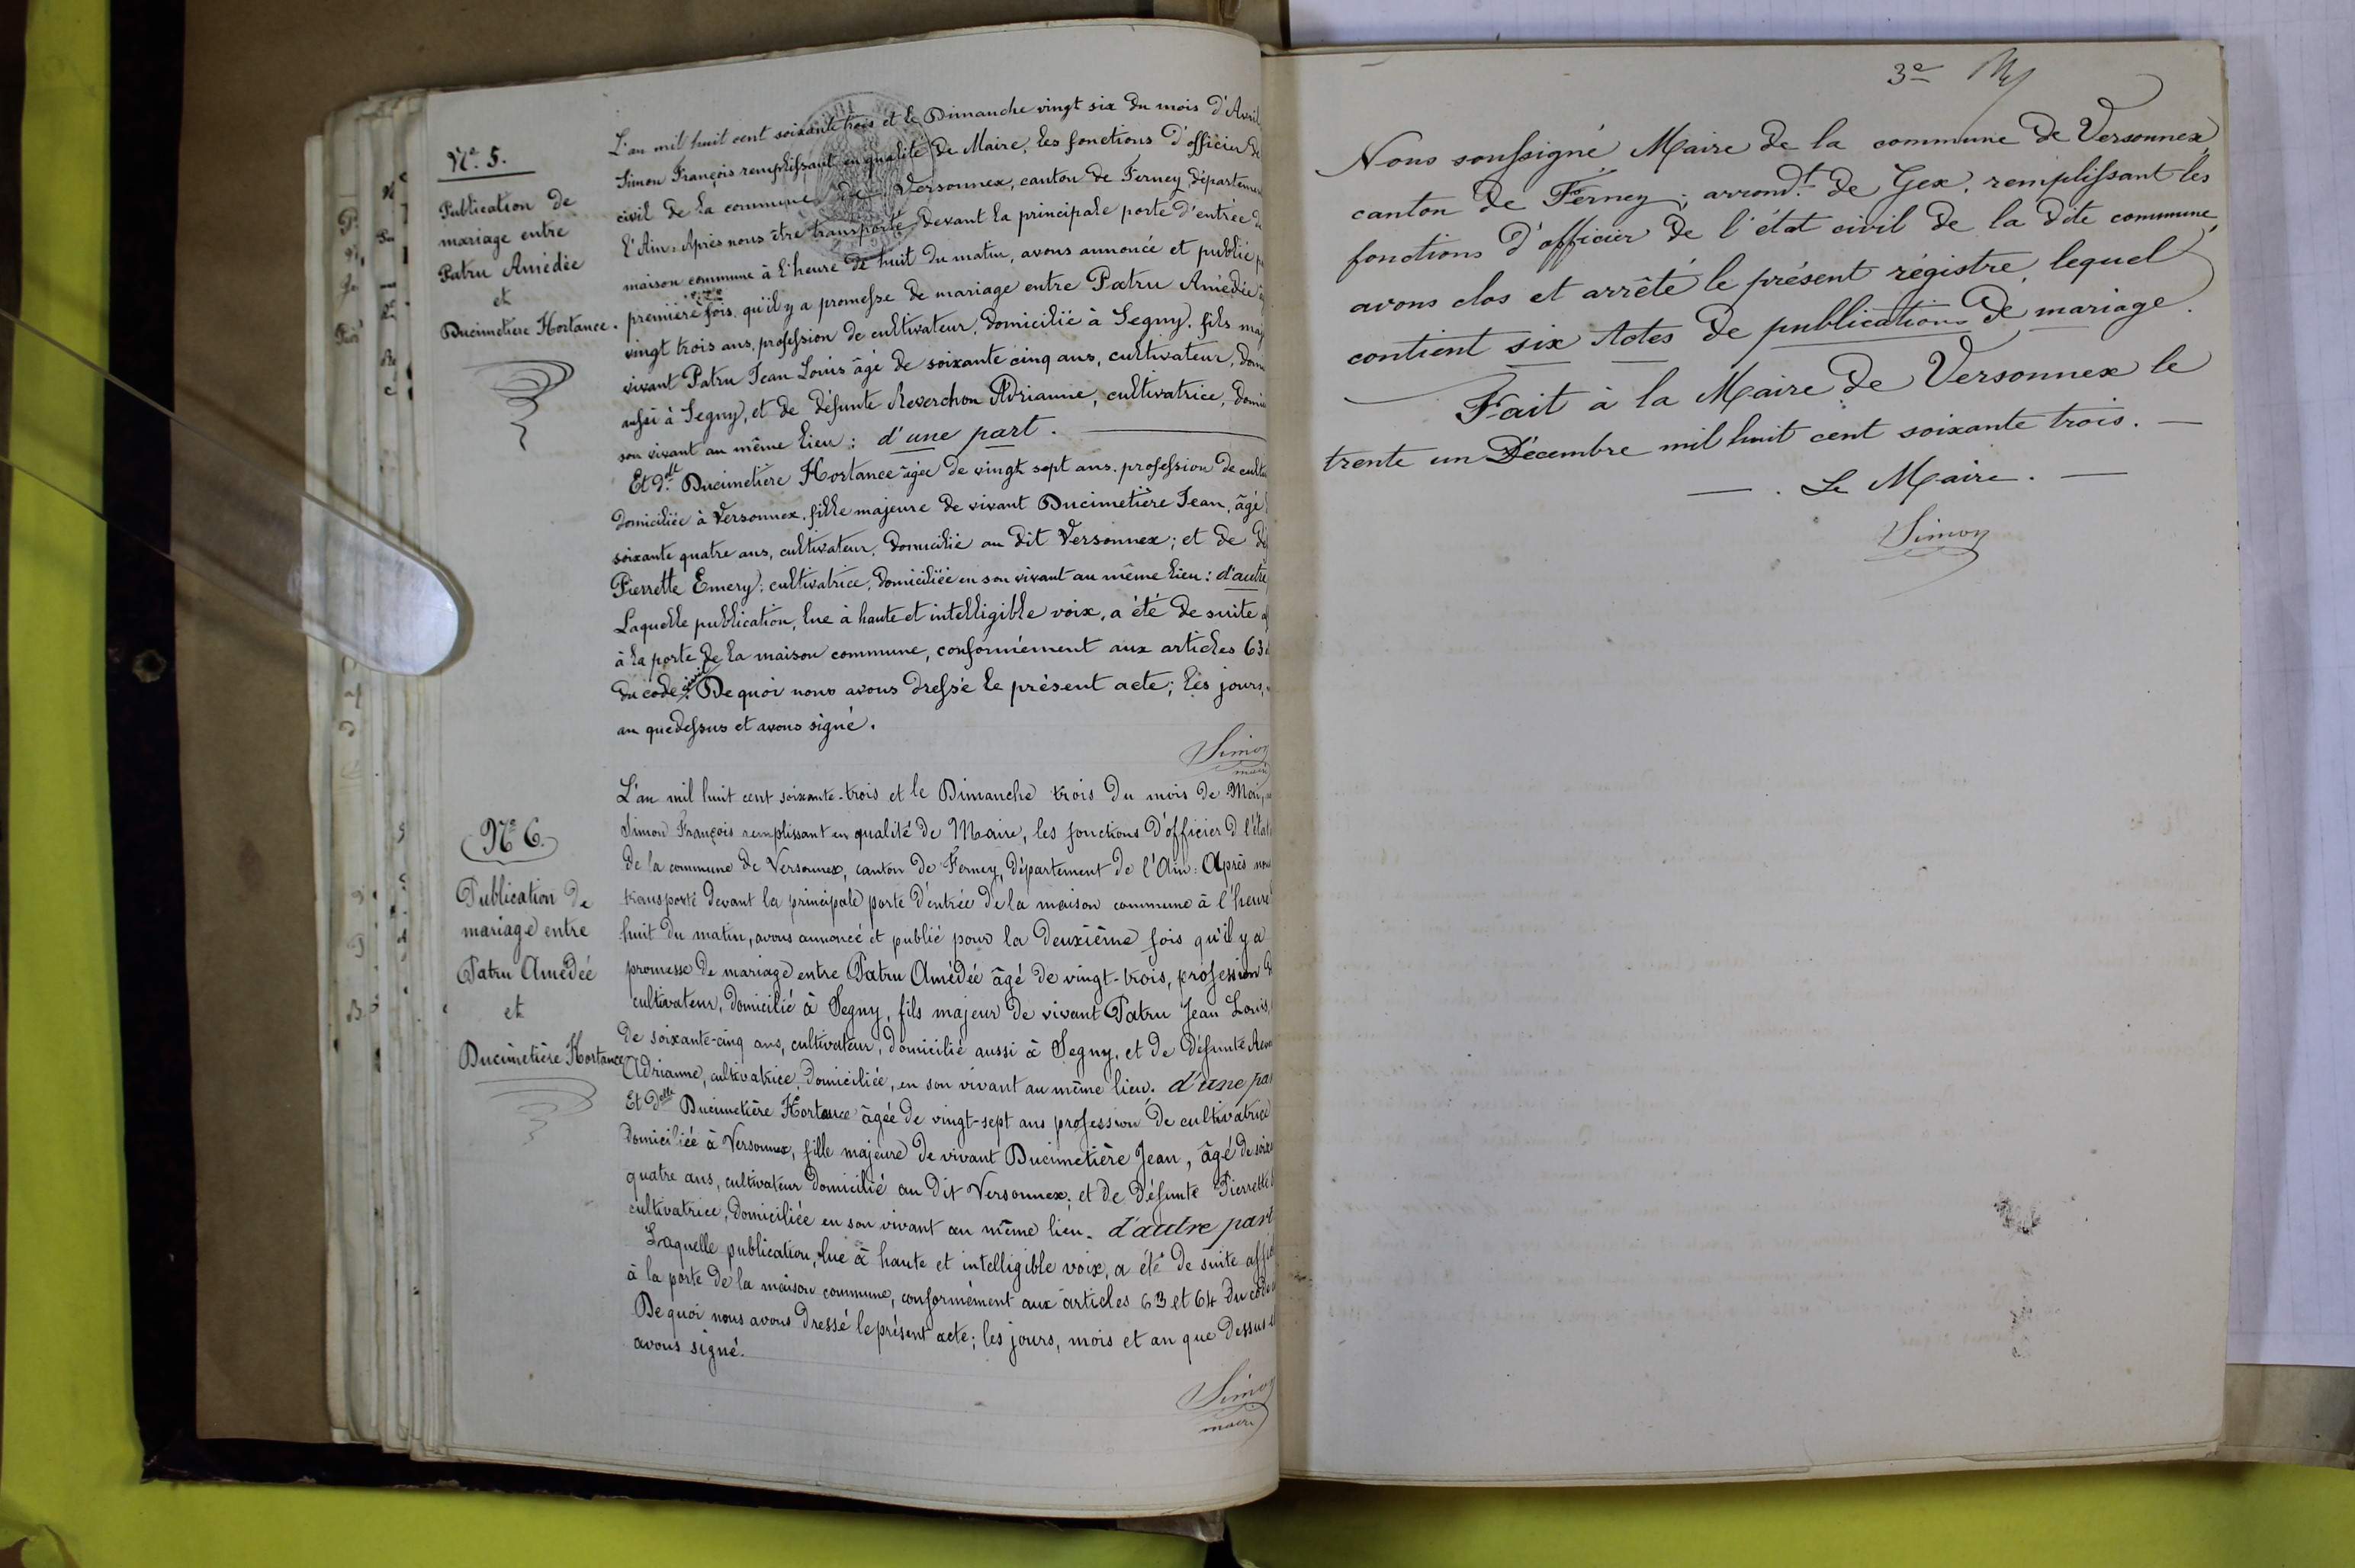 N° 5.
Publication de
mariage entre
Patru Amédée
et
Ducimetiere Hortance.
L'an mil huit cent soixante trois et le Dimanche vingt six du mois d'Avril
Simon François remplissant en qualité de Maire, les fonctions d'officier de
civil de la commune de Versonnex, canton de Ferney, départemen
l'Ain, Après nous être transporté devant la principale porte d'entrée de
maison commune à l'heure de huit du matin, avons annoncé et publié
première fois, qu'il y a promesse de mariage entre Patru Amédée
vingt trois ans, profession de cultivateur, domicilié à Segny, fils maj
vivant Patru Jean Louis âgé de soixante cinq ans, cultivateur, dom
aussi à Segny, et de défunte Reverchon Adrianne, cultivatrice, domi
son vivant au même lieu : d'une part.
Et dlle Ducimetière Hortance âgée de vingt sept ans, profession de cult
domiciliée à Versonnex, fille majeure de vivant Ducimetière Jean, âgé
soixante quatre ans, cultivateur, domicilié au dit Versonnex ; et de dé
Pierrette Emery : cultivatrice, domiciliée en son vivant au même lieu : d'autre
Laquelle publication, lue à haute et intelligible voix, a été de suite
à la porte de la maison commune, conformément aux articles 63
du code civil. De quoi nous avons dressé le présent acte ; les jours,
an que dessus et avons signé.
Simon
maire
N° 6.
Publication de
mariage entre
Patru Amédée
et
Ducimetière Hortance
L'an mil huit cent soixante-trois et le Dimanche trois du mois de Mai,
Simon François remplissant en qualité de Maire, les fonctions d'officier d l'état
de la commune de Versonnex, canton de Ferney, département de l'Ain : Après nous
transporté devant la principale porte d'entrée de la maison commune à l'heure
huit du matin, avons annoncé et publié pour la deuxième fois qu'il y a
promesse de mariage entre Patru Amédée âgé de vingt-trois, profession d
cultivateur, domicilié à Segny, fils majeur de vivant Patru Jean Louis,
de soixante-cinq ans, cultivateur, domicilié aussi à Segny, et de défunte Reve
Adrianne, cultivatrice, domiciliée, en son vivant au même lieu. d'une par
Et delle Ducimetière Hortance âgée de vingt-sept ans profession de cultivatrice
domiciliée à Versonnex, fille majeure de vivant Ducimetière Jean, âgé de soix
quatre ans, cultivateur domicilié au dit Versonnex ; et de défunte Pierrette
cultivatrice, domiciliée en son vivant au même lieu. d'autre part
Laquelle publication, lue à haute et intelligible voix, a été de suite affi
à la porte de la maison commune, conformément aux articles 63 et 64 du code
De quoi nous avons dressé le présent acte ; les jours, mois et an que dessus et
avons signé.
Simon
maire
3e
Nous soussigné Maire de la commune de Versonnex,
canton de Ferney, arrondt. de Gex, remplissant les
fonctions d'officier de l'état civil de la dite commune,
avons clos et arrêté le présent régistre, lequel
contient six Actes de publications de mariage.
Fait à la Maire de Versonnex le
trente un Décembre mil huit cent soixante trois.
Le Maire.
Simon